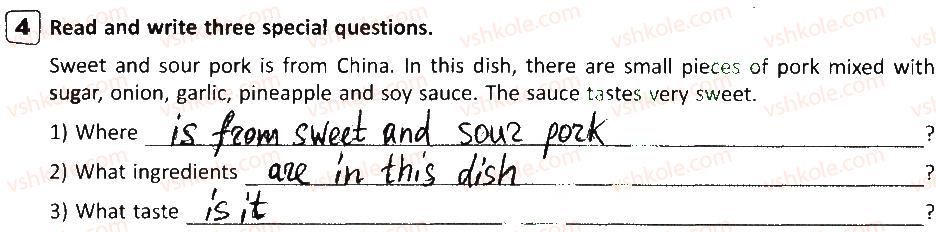 4 Read and write three special questions.
Sweet and sour pork is from China. In this dish, there are small pieces of pork mixed with
sugar, onion, garlic, pineapple and soy sauce. The sauce tastes very sweet.
1) Where is from sweet and sour pork ?
2) What ingredients are in this dish ?
3) What taste is it ?